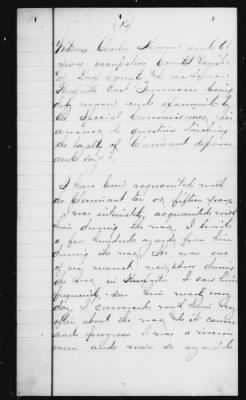 (12)
Witness Charles
occupation County Register
of Knox County residence
Knoxville East Tennessee being
duly sworn and examined by
the Special Commissioner in
answer to questions touching
the loyalty of Claimant deposes
and says:
I have been acquainted with
the Claimant ten or fifteen years
I was intimately acquainted with
him during the war, I lived
a few hundred yards from him
during the war, He was one
of my nearest neighbors during
the war in Knoxville. I saw him
frequently, saw him most every
day. I conversed with him very
often about the war and its causes
and progress I was a Union
man and was so regarded